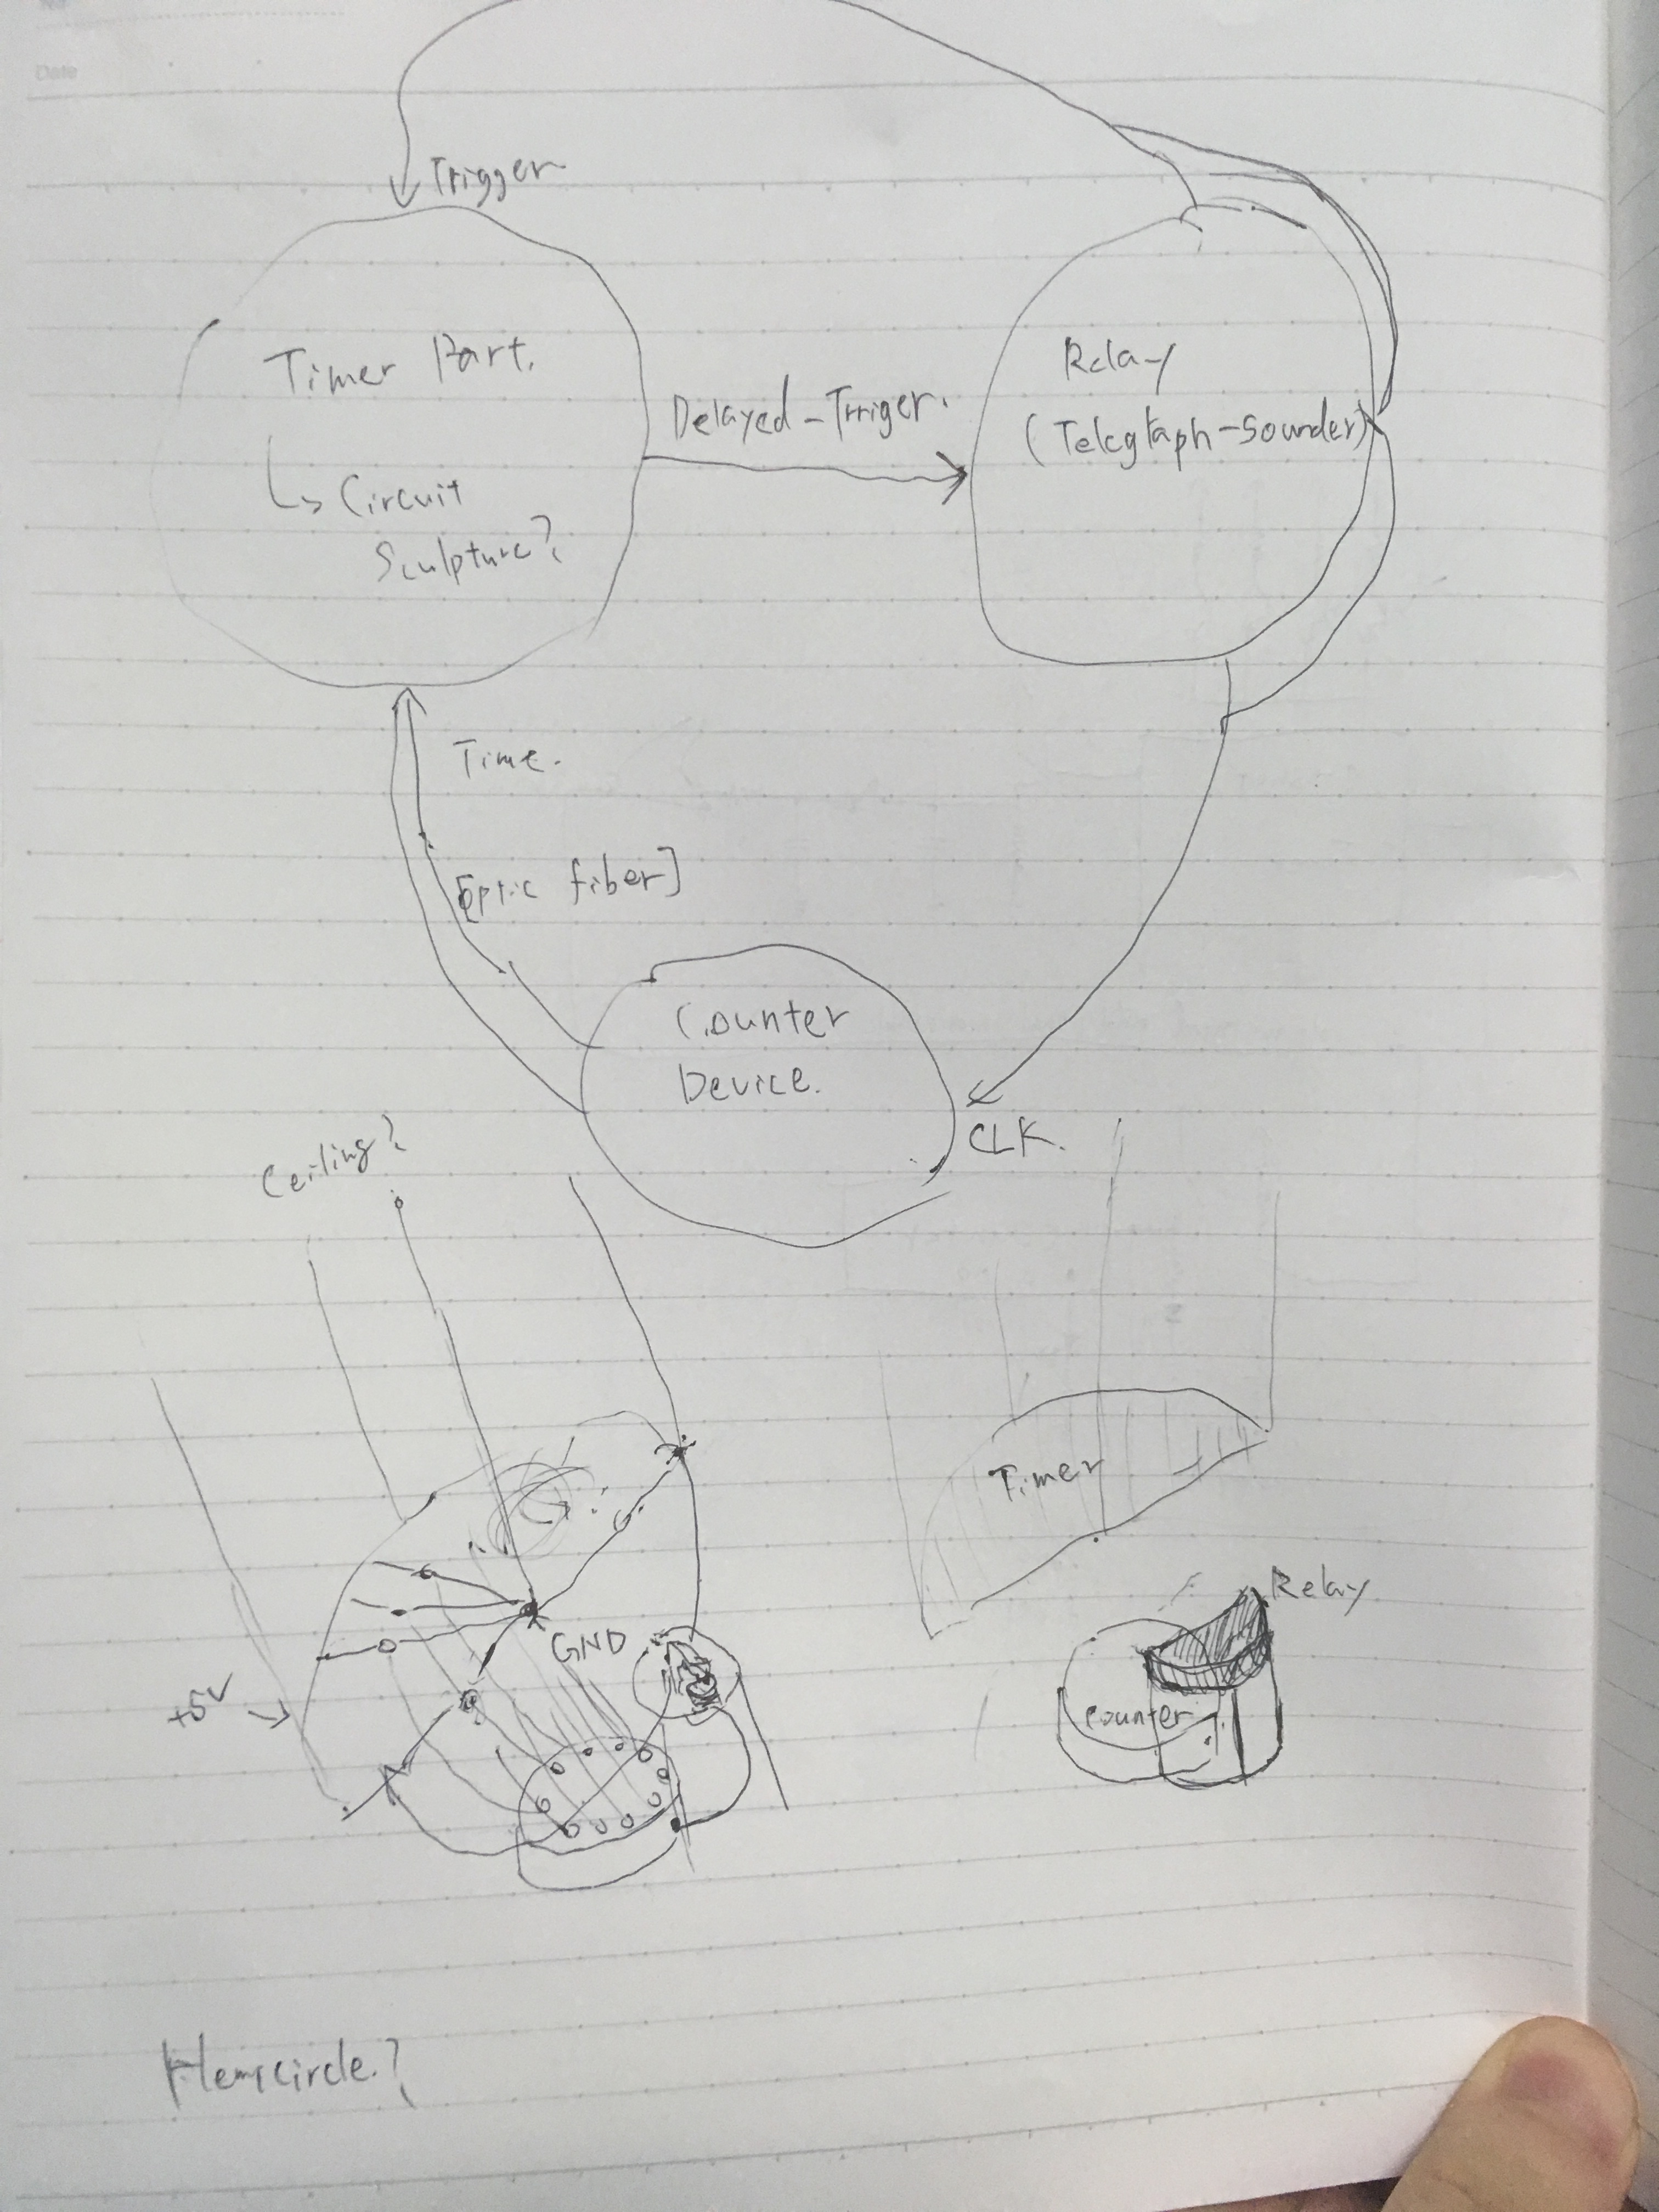 Date
Trigger
Timer Part.
↳ Circuit
Sculpture?
Delayed-Trriger.
Relay
(Telegraph-Sounder)
Time.
[Optic fiber]
Counter
Device.
CLK.
Ceiling?
Timer
Relay
GND
+5V
counter
Hemicircle.?